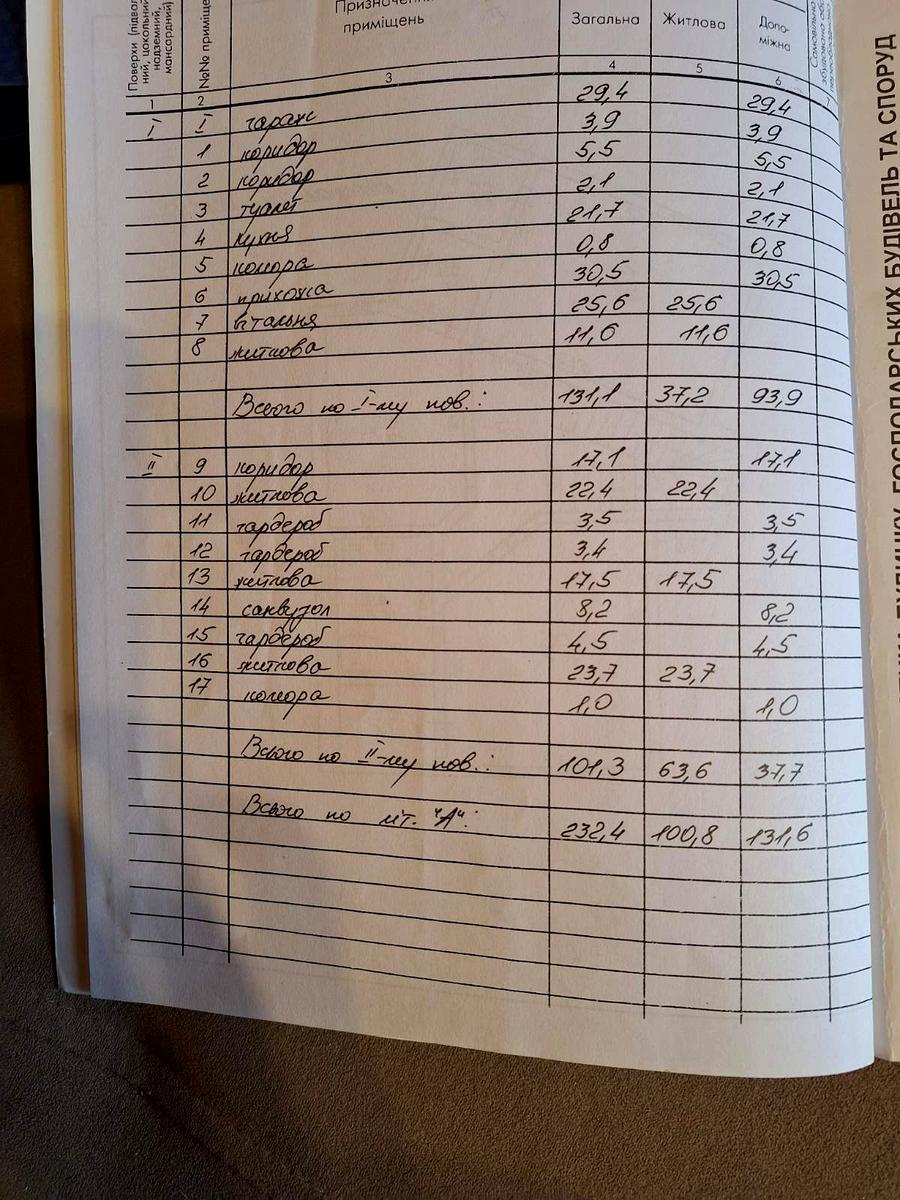 Поверхи (підваль
ний, цокольний
надземний,
мансардний)
№№ приміще
Призначен
приміщень
Загальна
Житлова
Допо-
міжна
1 2 3 4 5 6
I I гараж 29,4 29,4
1 коридор 3,9 3,9
2 коридор 5,5 5,5
3 туалет 2,1 2,1
4 кухня 21,7 21,7
5 комора 0,8 0,8
6 прихожа 30,5 30,5
7 вітальня 25,6 25,6
8 житлова 11,6 11,6
Всього по I-му пов.: 131,1 37,2 93,9
II 9 коридор 17,1 17,1
10 житлова 22,4 22,4
11 гардероб 3,5 3,5
12 гардероб 3,4 3,4
13 житлова 17,5 17,5
14 санвузол 8,2 8,2
15 гардероб 4,5 4,5
16 житлова 23,7 23,7
17 комора 1,0 1,0
Всього по II-му пов.: 101,3 63,6 37,7
Всього по літ. "А": 232,4 100,8 131,6
ГОСПОДАРСЬКИХ БУДІВЕЛЬ ТА СПОРУД